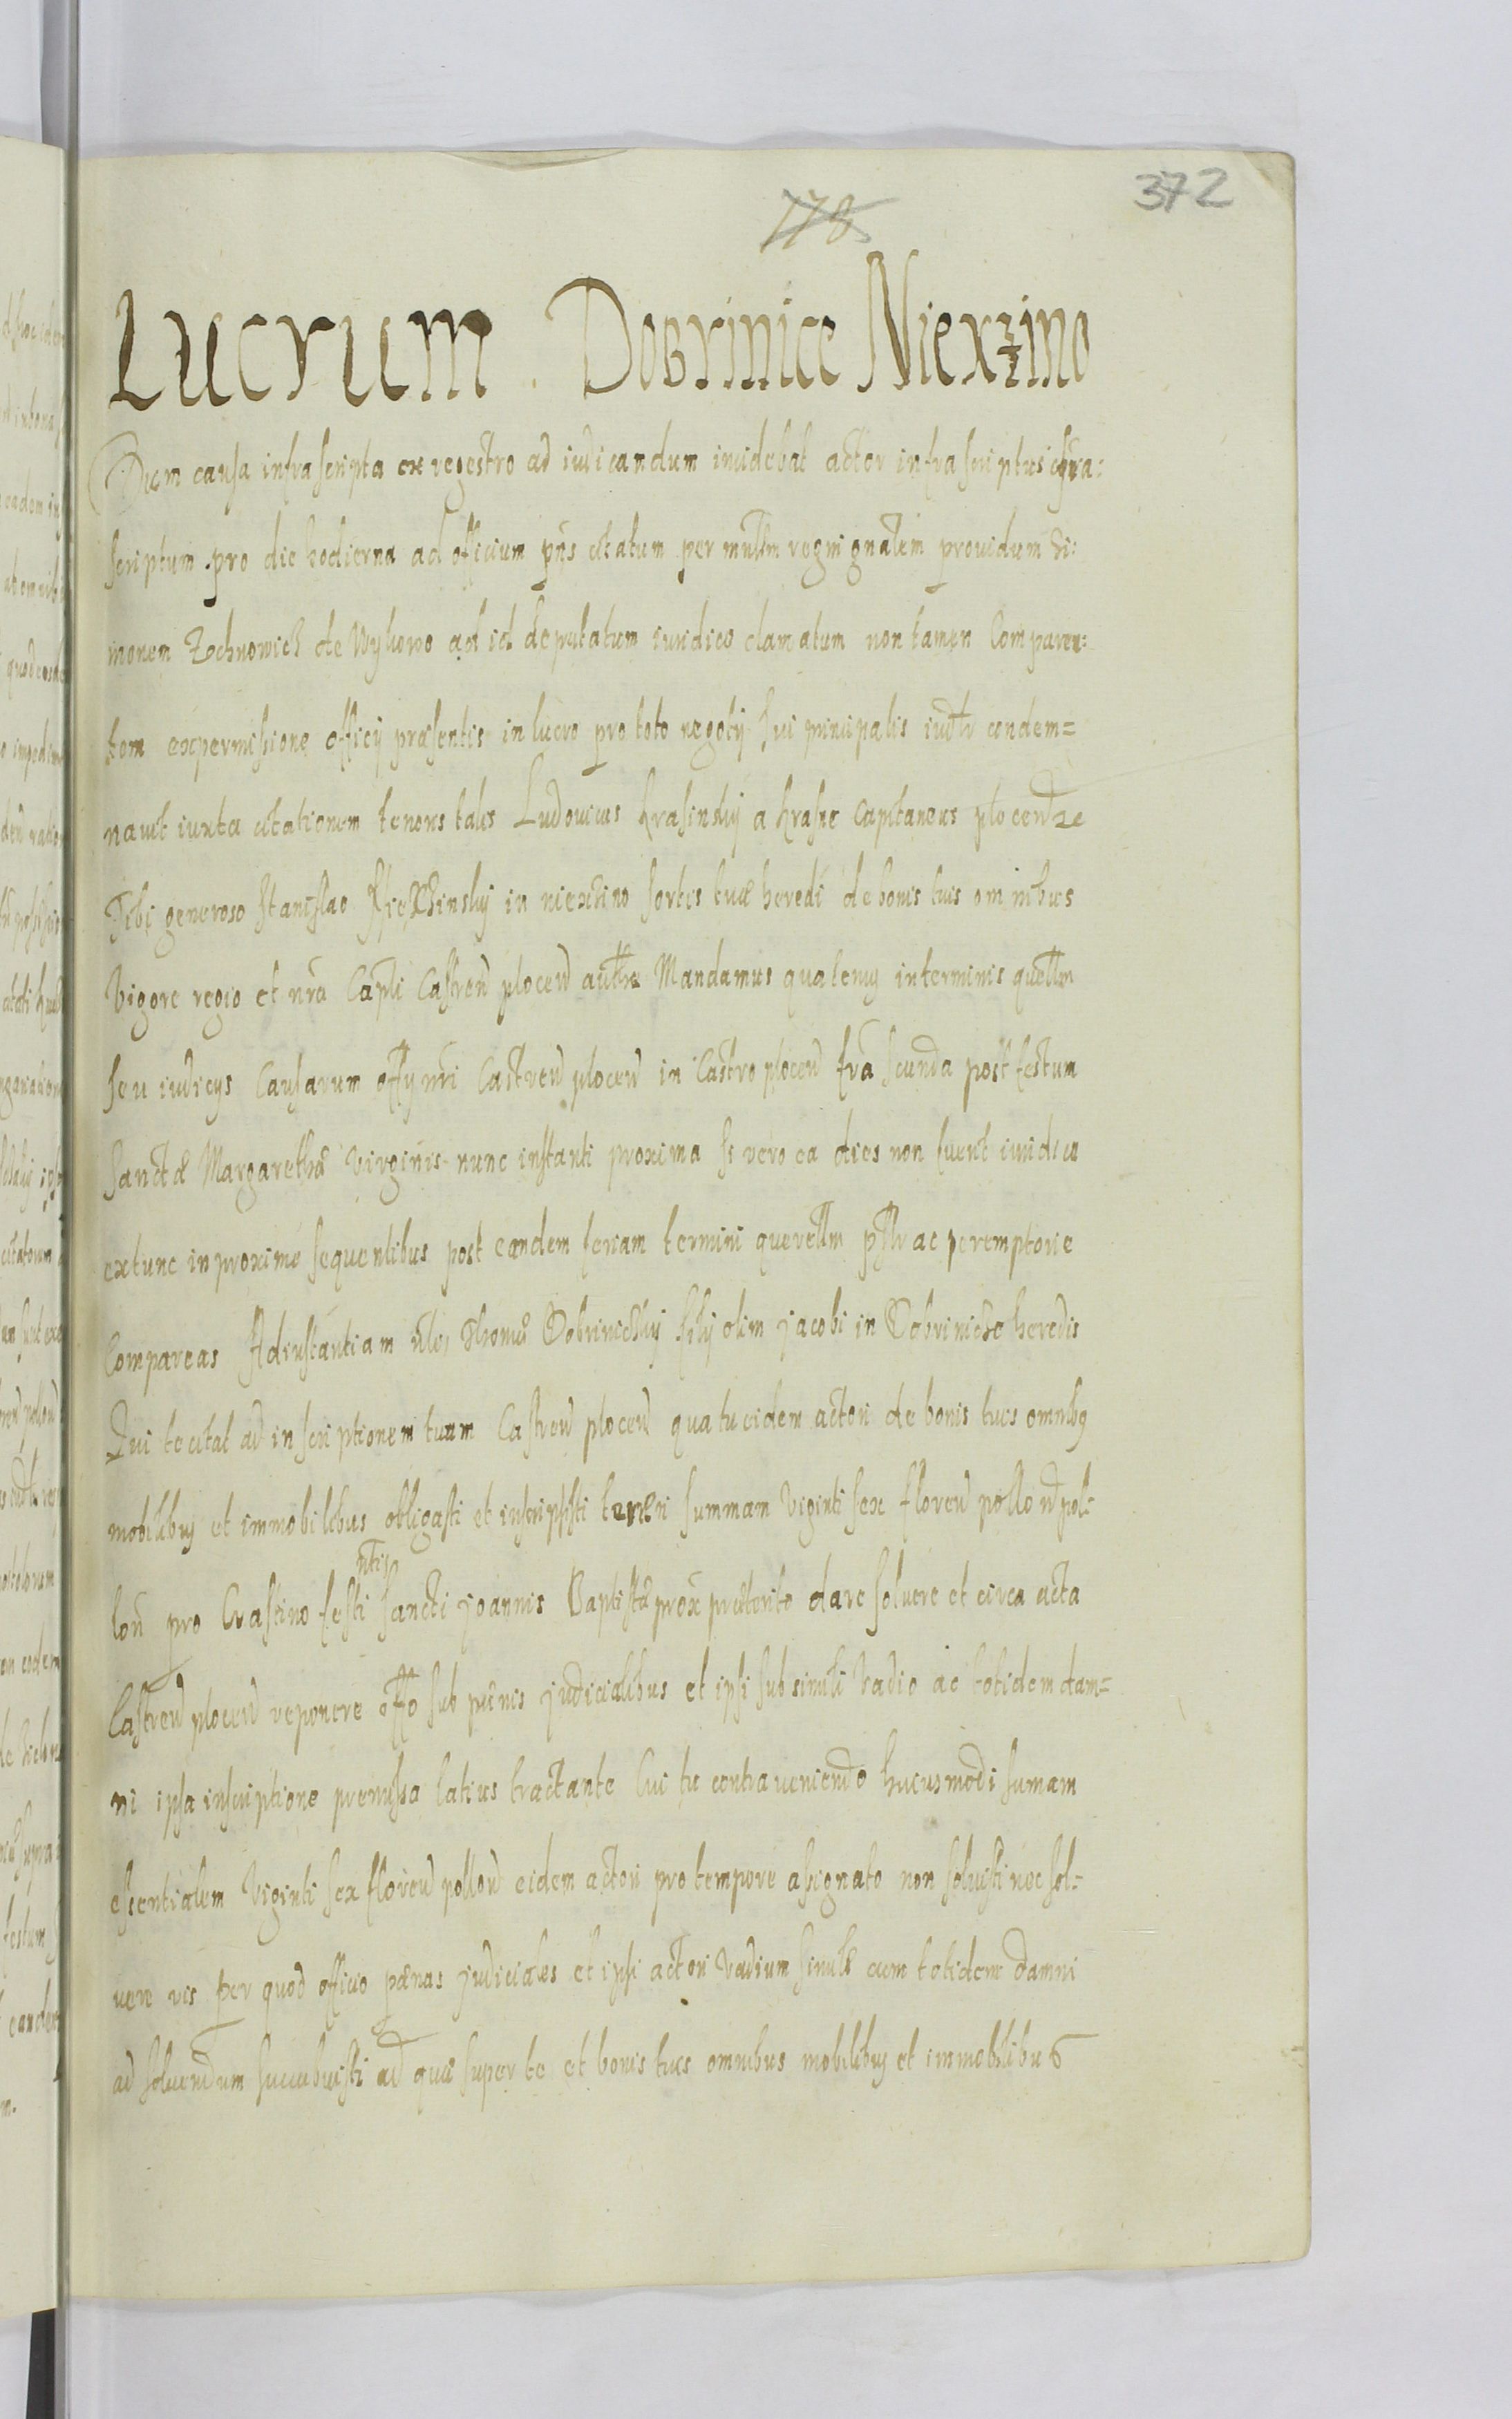 372
178
Lucrum . Dobrinice Niexzino
Dum causa infrascripta ex regestro ad iudicandum incidebat actor infrascriptus
scriptum pro die hodierna ad officium pñs citatum per mñlem regni gñalem prouidum Si:
monem Zochnowicz de Wykowo ad id deputatum iuridice clamatum non tamen Comparen:
tem ex permissione officy præsentis in lucro pro toto negoty sui principalis iudtr condem=
nauit iuxta citationem tenoris talis Ludouicus Krasinskij a Krasne Capitaneus plocen
Tibi generoso Stanislao Niexzinskij in niexzino sortis tuæ heredi de bonis tuis omnibus
Vigore regio et nrã Capti Castren plocen authte Mandamus quatenus in terminis quellm
seu iudicys Causarum offy nrĩ Castren plocen in Castro plocen frã secunda post festum
Sanctæ Margarethæ Virginis nunc instanti proxima si vero ea dies non fuerit iuridica
extunc in proxime sequentibus post eandem feriam termini querellm pstr ac peremptorie
Compareas Ad instantiam nlis Thomæ Dobrinickij filij olim Jacobi in Dobrinicze heredis
Qui te citat ad inscriptionem tuam Castren plocen qua tu eidem actori de bonis tuis omnibq
mobilibus et immobilibus obligasti et inscripsisti te summam Viginti sex floren pollon pol:
lon pro Crastino festi ntis sancti Joannis Baptistæ prox præterito dare soluere et circa acta
Castren plocen reponere offo sub pœnis judicialibus et ipsi sub simili Vadio ac totidem dam=
ni ipsa inscriptione premissa latius tractante Cui tu contraueniendo huiusmodi sumam
essentialem Viginti sex floren pollon eidem actori pro tempore assignato non soluisti nec sol:
uere vis per quod officio pœnas judiciales et ipsi actori Vadium simile cum totidem damni
ad soluendum succubuisti ad quæ super te et bonis tuis omnibus mobilibus et immobilibus